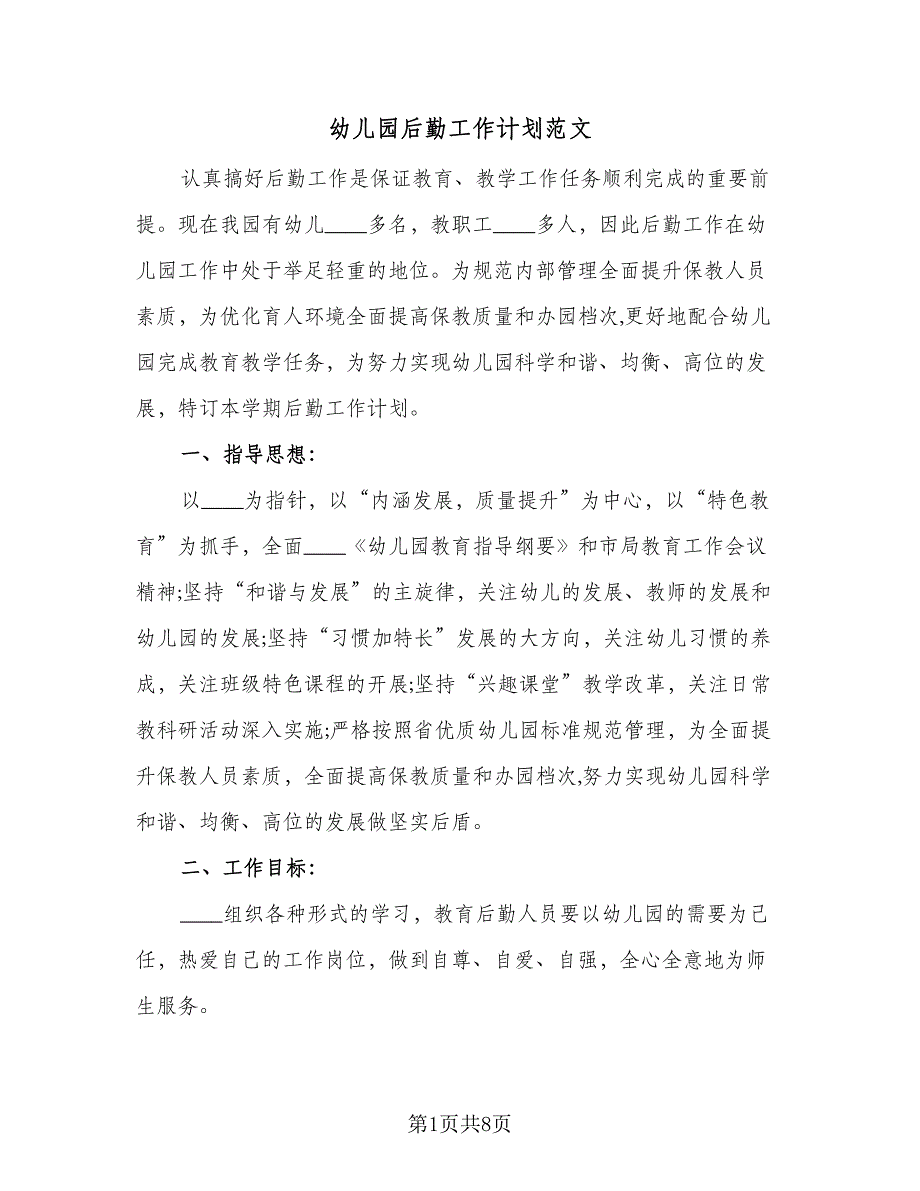 幼儿园后勤工作计划范文
认真搞好后勤工作是保证教育、教学工作任务顺利完成的重要前
提。现在我园有幼儿____多名，教职工____多人，因此后勤工作在幼
儿园工作中处于举足轻重的地位。为规范内部管理全面提升保教人员
素质，为优化育人环境全面提高保教质量和办园档次,更好地配合幼儿
园完成教育教学任务，为努力实现幼儿园科学和谐、均衡、高位的发
展，特订本学期后勤工作计划。
一、指导思想：
以____为指针，以“内涵发展，质量提升”为中心，以“特色教
育”为抓手，全面____《幼儿园教育指导纲要》和市局教育工作会议
精神;坚持“和谐与发展”的主旋律，关注幼儿的发展、教师的发展和
幼儿园的发展;坚持“习惯加特长”发展的大方向，关注幼儿习惯的养
成，关注班级特色课程的开展;坚持“兴趣课堂”教学改革，关注日常
教科研活动深入实施;严格按照省优质幼儿园标准规范管理，为全面提
升保教人员素质，全面提高保教质量和办园档次,努力实现幼儿园科学
和谐、均衡、高位的发展做坚实后盾。
二、工作目标：
____组织各种形式的学习，教育后勤人员要以幼儿园的需要为己
任，热爱自己的工作岗位，做到自尊、自爱、自强，全心全意地为师
生服务。
第1页共8页